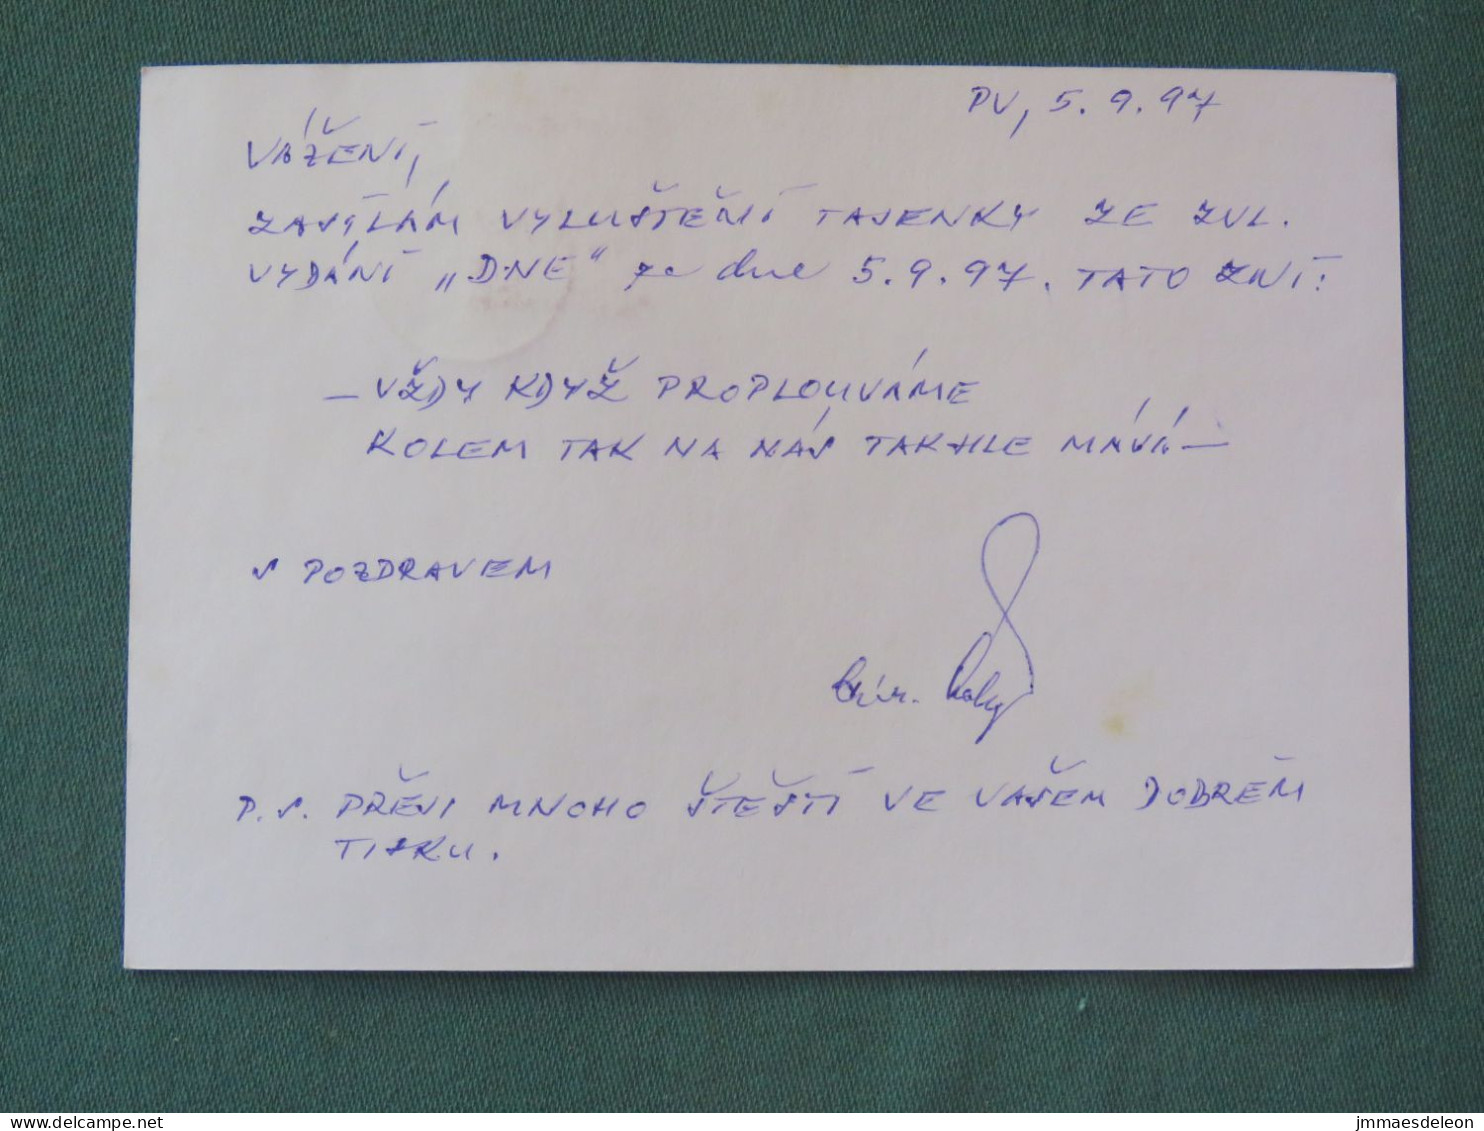 PV, 5. 9. 97
VÁŽENÍ,
ZASÍLÁM VYLUŠTĚNÍ TAJENKY ZE ZVL.
VYDÁNÍ „DNE“ ze dne 5. 9. 97. TATO ZNÍ:
– VŽDY KDYŽ PROPLOUVÁME
KOLEM TAK NA NÁS TAKHLE MÁVÁ –
S POZDRAVEM
P.S. PŘEJI MNOHO ŠTĚSTÍ VE VAŠEM DOBRÉM
TISKU.
jmmaesdeleon